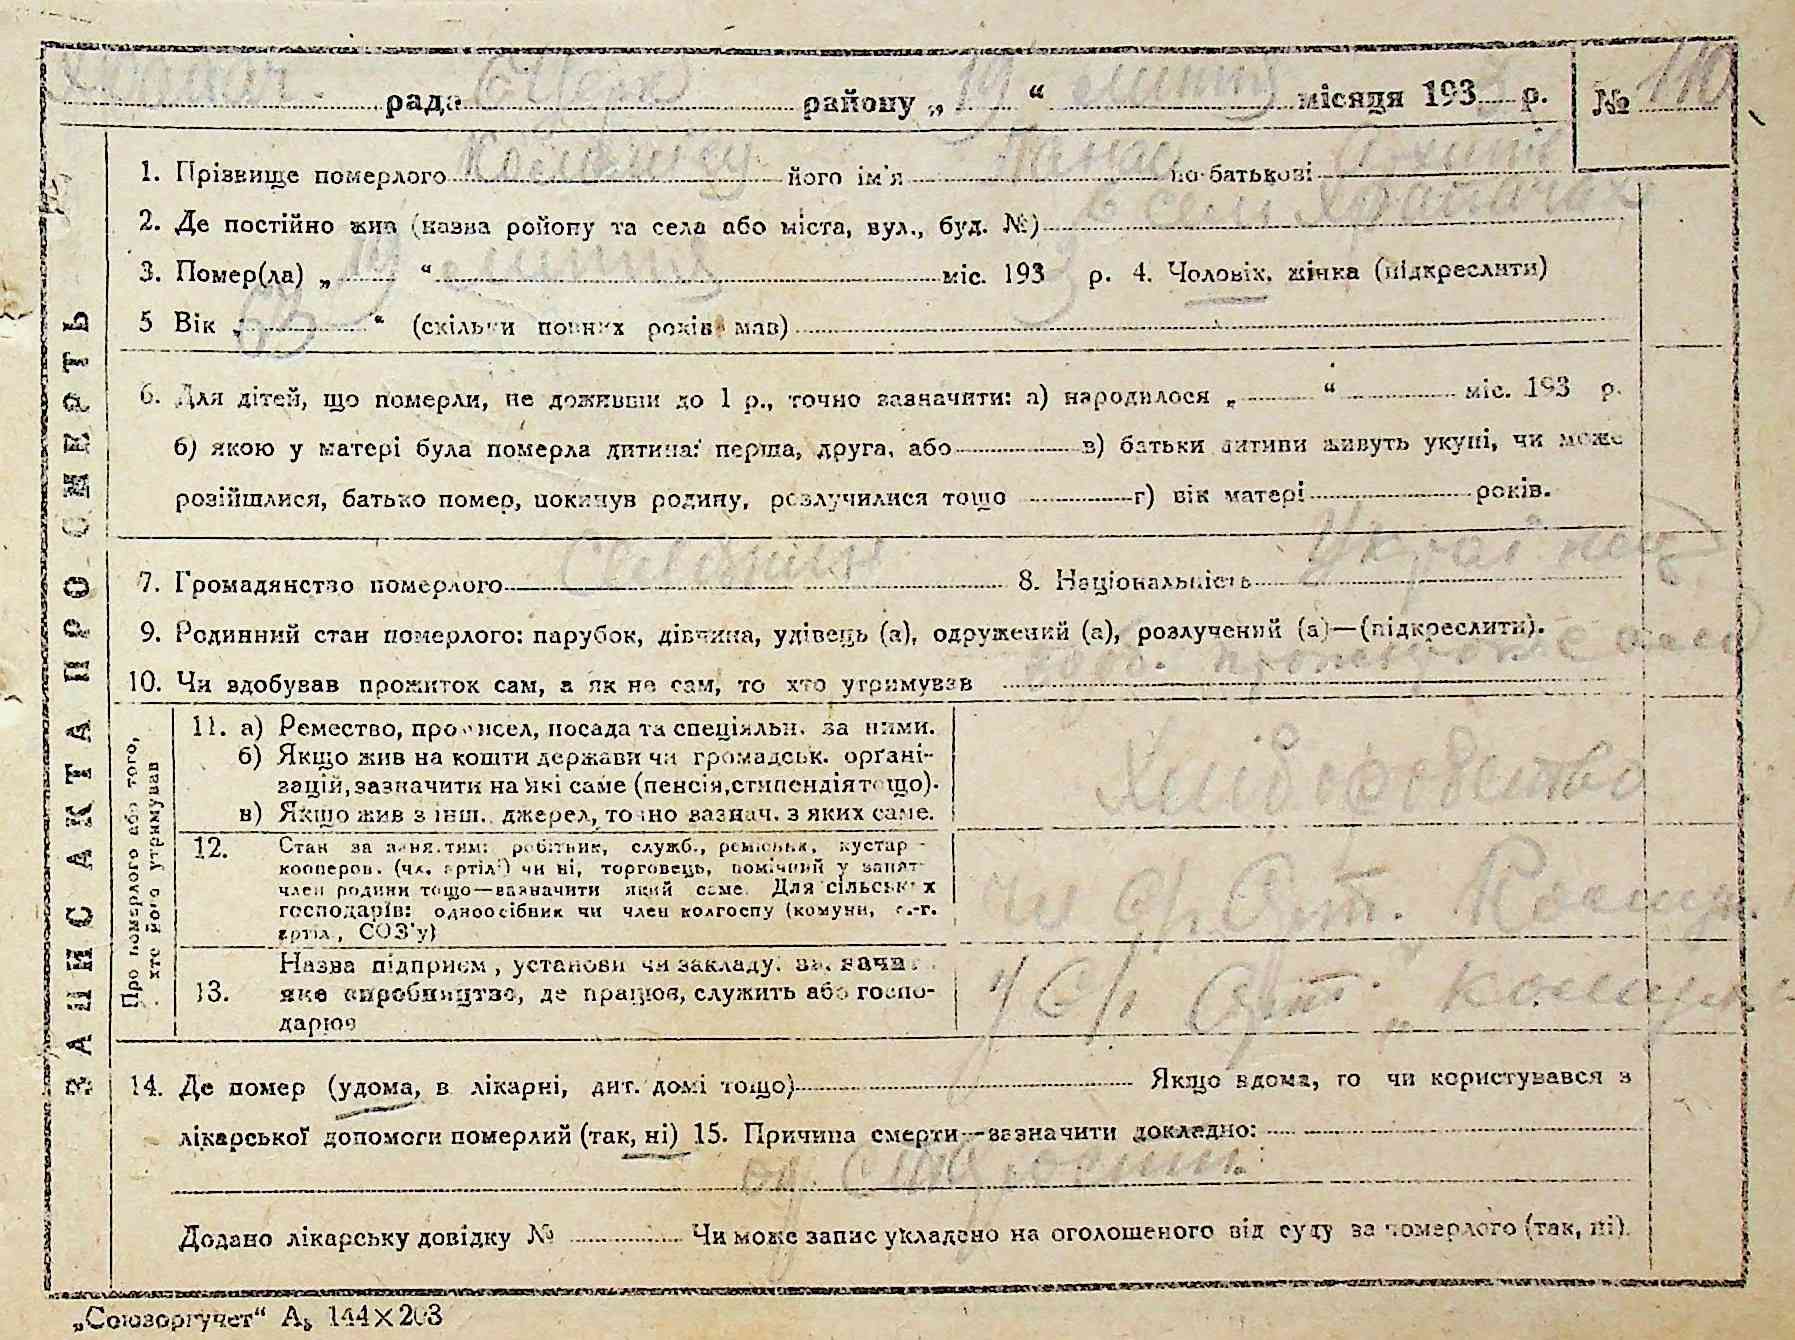 Храпач. рада БЦерк району „19“ липня місяця 1933 р. № 110
1. Прізвище померлого його ім'я Панас по-батькові
2. Де постійно жив (назва ройону та села або міста, вул., буд. №) в селі Храпачах
3. Помер(ла) „19“ липня міс. 1933 р. 4. Чоловік, жінка (підкреслити)
5 Вік „63“ (скільки повних років мав)
6. Для дітей, що померли, не доживши до 1 р., точно зазначити: а) народилося „ “ міс. 193 р.
б) якою у матері була померла дитина: перша, друга, або в) батьки дитини живуть укупі, чи може
розійшлися, батько помер, покинув родину, розлучилися тощо г) вік матері років.
7. Громадянство померлого 8. Національність Украінец
9. Родинний стан померлого: парубок, дівчина, удівець (а), одружений (а), розлучений (а)—(підкреслити).
10. Чи здобував прожиток сам, а як не сам, то хто утримував здоб. прожиток сам
ЗАПИС АКТА ПРО СМЕРТЬ
Про померлого або того, хто його утримував
11. а) Ремество, промисел, посада та спеціяльн. за ними.
б) Якщо жив на кошти держави чи громадськ. органі-
зацій, зазначити на які саме (пенсія, стипендія тощо).
в) Якщо жив з інш. джерел, точно зазнач. з яких саме.
Хліборобство
12. Стан за заняттям: робітник, служб., ремісник, кустар -
кооперов. (чл. артілі) чи ні, торговець, помічний у занят
член родини тощо—зазначити який саме. Для сільських
господарів: одноосібник чи член колгоспу (комуни, с.-г.
артіл., СОЗ'у)
Чл с/г. Арт.
13. Назва підприєм., установи чи закладу, зазначи
яке виробництво, де працює, служить або госпо-
дарює
у С/г Арт.
14. Де помер (удома, в лікарні, дит. домі тощо) Якщо вдома, то чи користувався з
лікарської допомоги померлий (так, ні) 15. Причина смерти—зазначити докладно:
Додано лікарську довідку № Чи може запис укладено на оголошеного від суду за померлого (так, ні).
„Союзоргучет“ А5 144×203